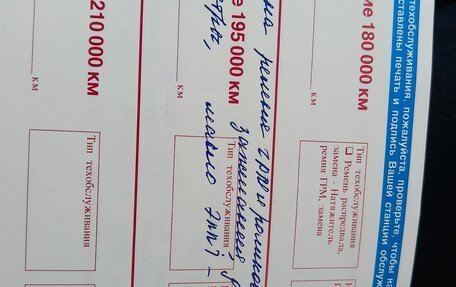 техобслуживания, пожалуйста, проверьте, чтобы на
ставлены печать и подпись Вашей станции обслуж
ие 180 000 КМ
КМ
Тип техобслуживания
☐ Ремень распредвала,
замена - Натяжитель
ремня ГРМ, замена
на ремень грм и ролики
е 195 000 КМ
КМ
Тип техобслуживания
масло
210 000 КМ
КМ
Тип техобслуживания